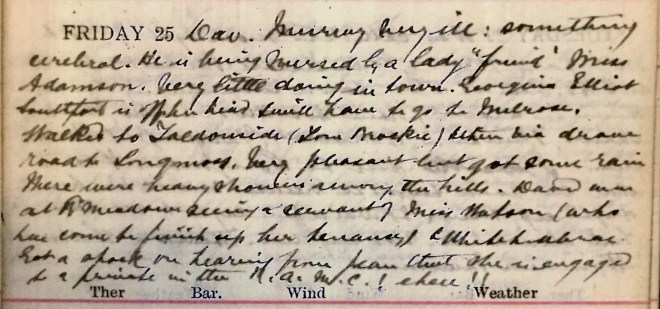 FRIDAY 25 Dav. Murray very ill: something
cerebral. He is being nursed by a lady "friend" Miss
Adamson. Very little doing in town. Georgina Elliot
Southport is off her head & will have to go to Melrose.
Walked to Faldonside (Tom Brockie) then via drove
road to Longmoss. Very pleasant but got some rain
There were heavy showers among the hills. David was
at R. Meadows seeing a servant of Miss Watson (who
has come to finish up her tenancy)
Got a shock on hearing from Jean that she is engaged
to a private in the R.A.M.C.! eheu!!
Ther Bar. Wind Weather